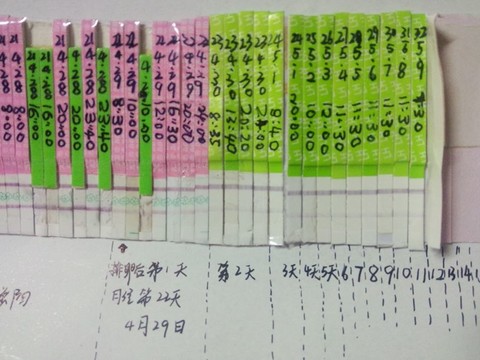 21 4.28 8:00
4.28 16:00
21 4.28 20:00
4.28 20:00
21 4.28 23:40
4.28 23:40
22 4.29 8:30
22 4.29 10:00
4.29 10:00
22 4.29 12:00
22 4.29 16:30
22 4.29 20:00
22 4.29 24:00
23 4.30 8:35
23 4.30 13:40
23 4.30 20:20
24 5.1 9:40
5.1 20:00
25 5.2 10:00
26 5.3 12:00
27 5.4 11:30
5.5 11:30
29 5.6 11:30
30 5.7 11:30
31 5.8 11:30
32 5.9 7:30
排卵后第1天
月经第22天
4月29日
第2天
3天 4天 5天 6 7 8 9 10 11 12 13 14